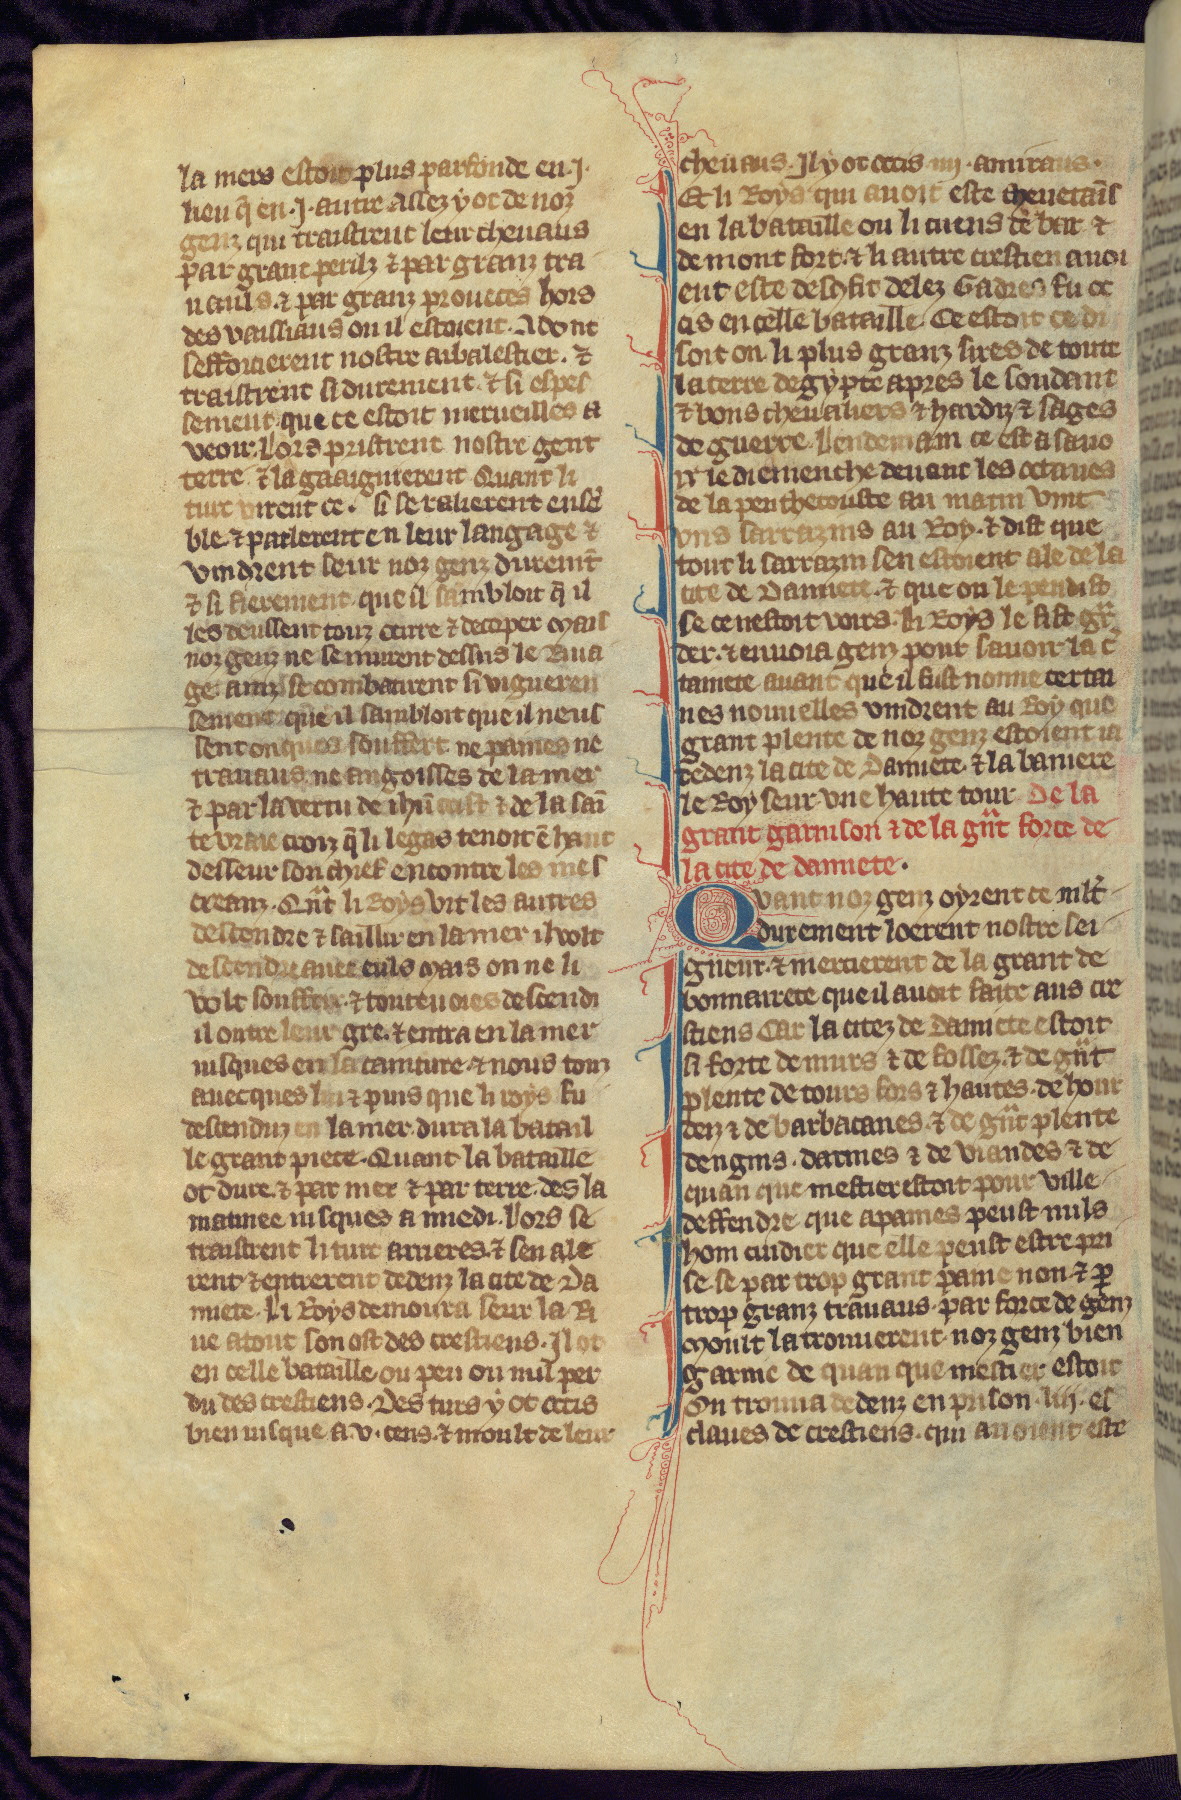 la mers estoit plus parfonde en .j.
lieu q̄ en .j. autre Assez y ot de noz
genz qui traistrent leur cheuaus
par grant perilz ⁊ par granz tra
uauls. ⁊ par granz proueces hors
des vaissiaus ou il estoient. Adont
sefforcierent nostre arbalestier. ⁊
traistrent si durement. ⁊ si espes
sement. que ce estoit merueilles a
veoir. Lors pristrent nostre gent
terre. ⁊ la gaaignierent Quant li
turc virent ce. si se ralierent ensē
ble. ⁊ parlerent en leur langage ⁊
vindrent seur noz genz duremt̄
⁊ si fierement. que il sambloit q̄ il
les deussent touz ocirre ⁊ decoper Mais
noz genz ne se murent dessus le Riua
ge. ainz se combatirent si viguereu
sement. que il sambloit que il neus
sent onques souffert ne paines ne
trauaus. ne angoisses de la mer
⁊ par la vertu de ihū crist ⁊ de la sai̅
te vraie croiz q̄ li legas tenoit ē haut
desseur son chief encontre les mes
creanz. Qn̄t li Roys vit les autres
descendre ⁊ saillir en la mer il volt
descendre auec euls Mais on ne li
volt souffrir. ⁊ toutevoies descendi
il outre leur gre. ⁊ entra en la mer
iusques en la cainture. ⁊ nous touz
auecques lui ⁊ puis que li roys fu
descenduz en la mer. dura la batail
le grant piece. Quant la bataille
ot dure. ⁊ par mer ⁊ par terre. des la
matinee iusques a miedi. Lors se
traistrent li turc arrieres. ⁊ sen ale
rent ⁊ entrerent dedenz la cite de Da
miete. Li Roys demoura seur la Ri
ue atout son ost des crestiens. Il ot
en celle bataille. ou peu ou nul per
du des crestiens. Des turs y ot ocis
bien iusque a .v. cens. ⁊ moult de leur
cheuaus. Il y ot ocis .iiij. amiraus.
Et li Roys qui auoit este cheuetais̄
en la bataille ou li cuens de bar ⁊
de mont fort. ⁊ li autre crestien auoi
ent este desconfit delez Gadres fu oc
cis en celle bataille. Ce estoit ce di
soit on. li plus granz sires de toute
la terre degypte apres le soudant
⁊ bons cheualiers ⁊ hardiz ⁊ sages
de guerre. Lendemain ce est a sauo
ir le diemenche deuant les octaues
de la penthecouste au matin vint
vns sarrazins au Roy. ⁊ dist que
tout li sarrazin sen estoient ale de la
cite de Damiete. ⁊ que on le pendist
se ce nestoit voirs. Li Roys le fist gar
der. ⁊ enuoia genz pour sauoir la c̄
tainete auant que il fust nonne certai
nes nouuelles vindrent au Roy que
grant plente de noz genz estoient ia
dedenz la cite de Damiete. ⁊ la baniere
le Roy seur vne haute tour De la
grant garnison ⁊ de la gn̄t force de
la cite de damiete.
Quant noz genz oyrent ce mlt̄
durement loerent nostre sei
gneur. ⁊ mercierent de la grant de
bonnairete que il auoit faite aus cre
stiens Car la citez de Damiete estoit
si forte de murs ⁊ de fossez. ⁊ de gn̄t
plente de tours fors ⁊ hautes. de hour
dez ⁊ de barbacanes. ⁊ de gn̄t plente
dengins. darmes ⁊ de viandes ⁊ de
quan que mestier estoit pour ville
deffendre. que apaines peust nuls
hom cuidier que elle peust estre pri
se se par trop grant paine non ⁊ p̄
trop granz trauaus. par force de genz
Moult la trouuerent noz genz bien
garnie de quan que mestier estoit
On trouua dedenz en prison .liij. es
claues de crestiens. qui auoient este